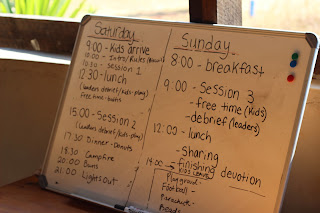 Saturday
9:00 - Kids arrive
10:00 - Intro/Rules
10:30 - Session 1
12:30 - lunch
(leaders debrief/kids-play)
free time-
15:00 - Session 2
(leaders debrief/kids-play)
17:30 Dinner -Donuts
18:30 Campfire
20:00
21:00 Lights out
Sunday
8:00 - breakfast
9:00 - Session 3
- free time (kids)
- debrief (leaders)
12:00 - lunch
- Sharing
14:00 finishing devotion
Playground-
Football-
Parachute-